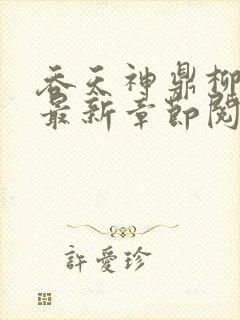 吞天神鼎柳
最新章節閱
許愛珍